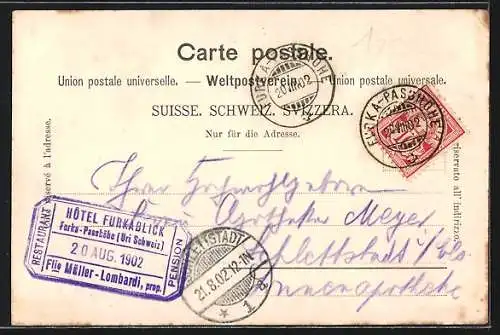 Carte postale.
Union postale universelle. — Weltpostverein. — Unione postale universale.
SUISSE. SCHWEIZ. SVIZZERA.
Nur für die Adresse.
réservé à l'adresse.
riservato all'indirizzo.
FURKA-PASSHÖHE
20 VIII 02
FURKA-PASSHÖHE
20 VIII 02
Ihrer Hochwohlgeboren
Herrn Apotheker Meyer
Schlettstadt i/Els
RESTAURANT
HÔTEL FURKABLICK
Furka-Passhöhe (Uri Schweiz)
20 AUG. 1902
Flle Müller-Lombardi, prop.
PENSION
21.8.02.12-1N
* 1 a